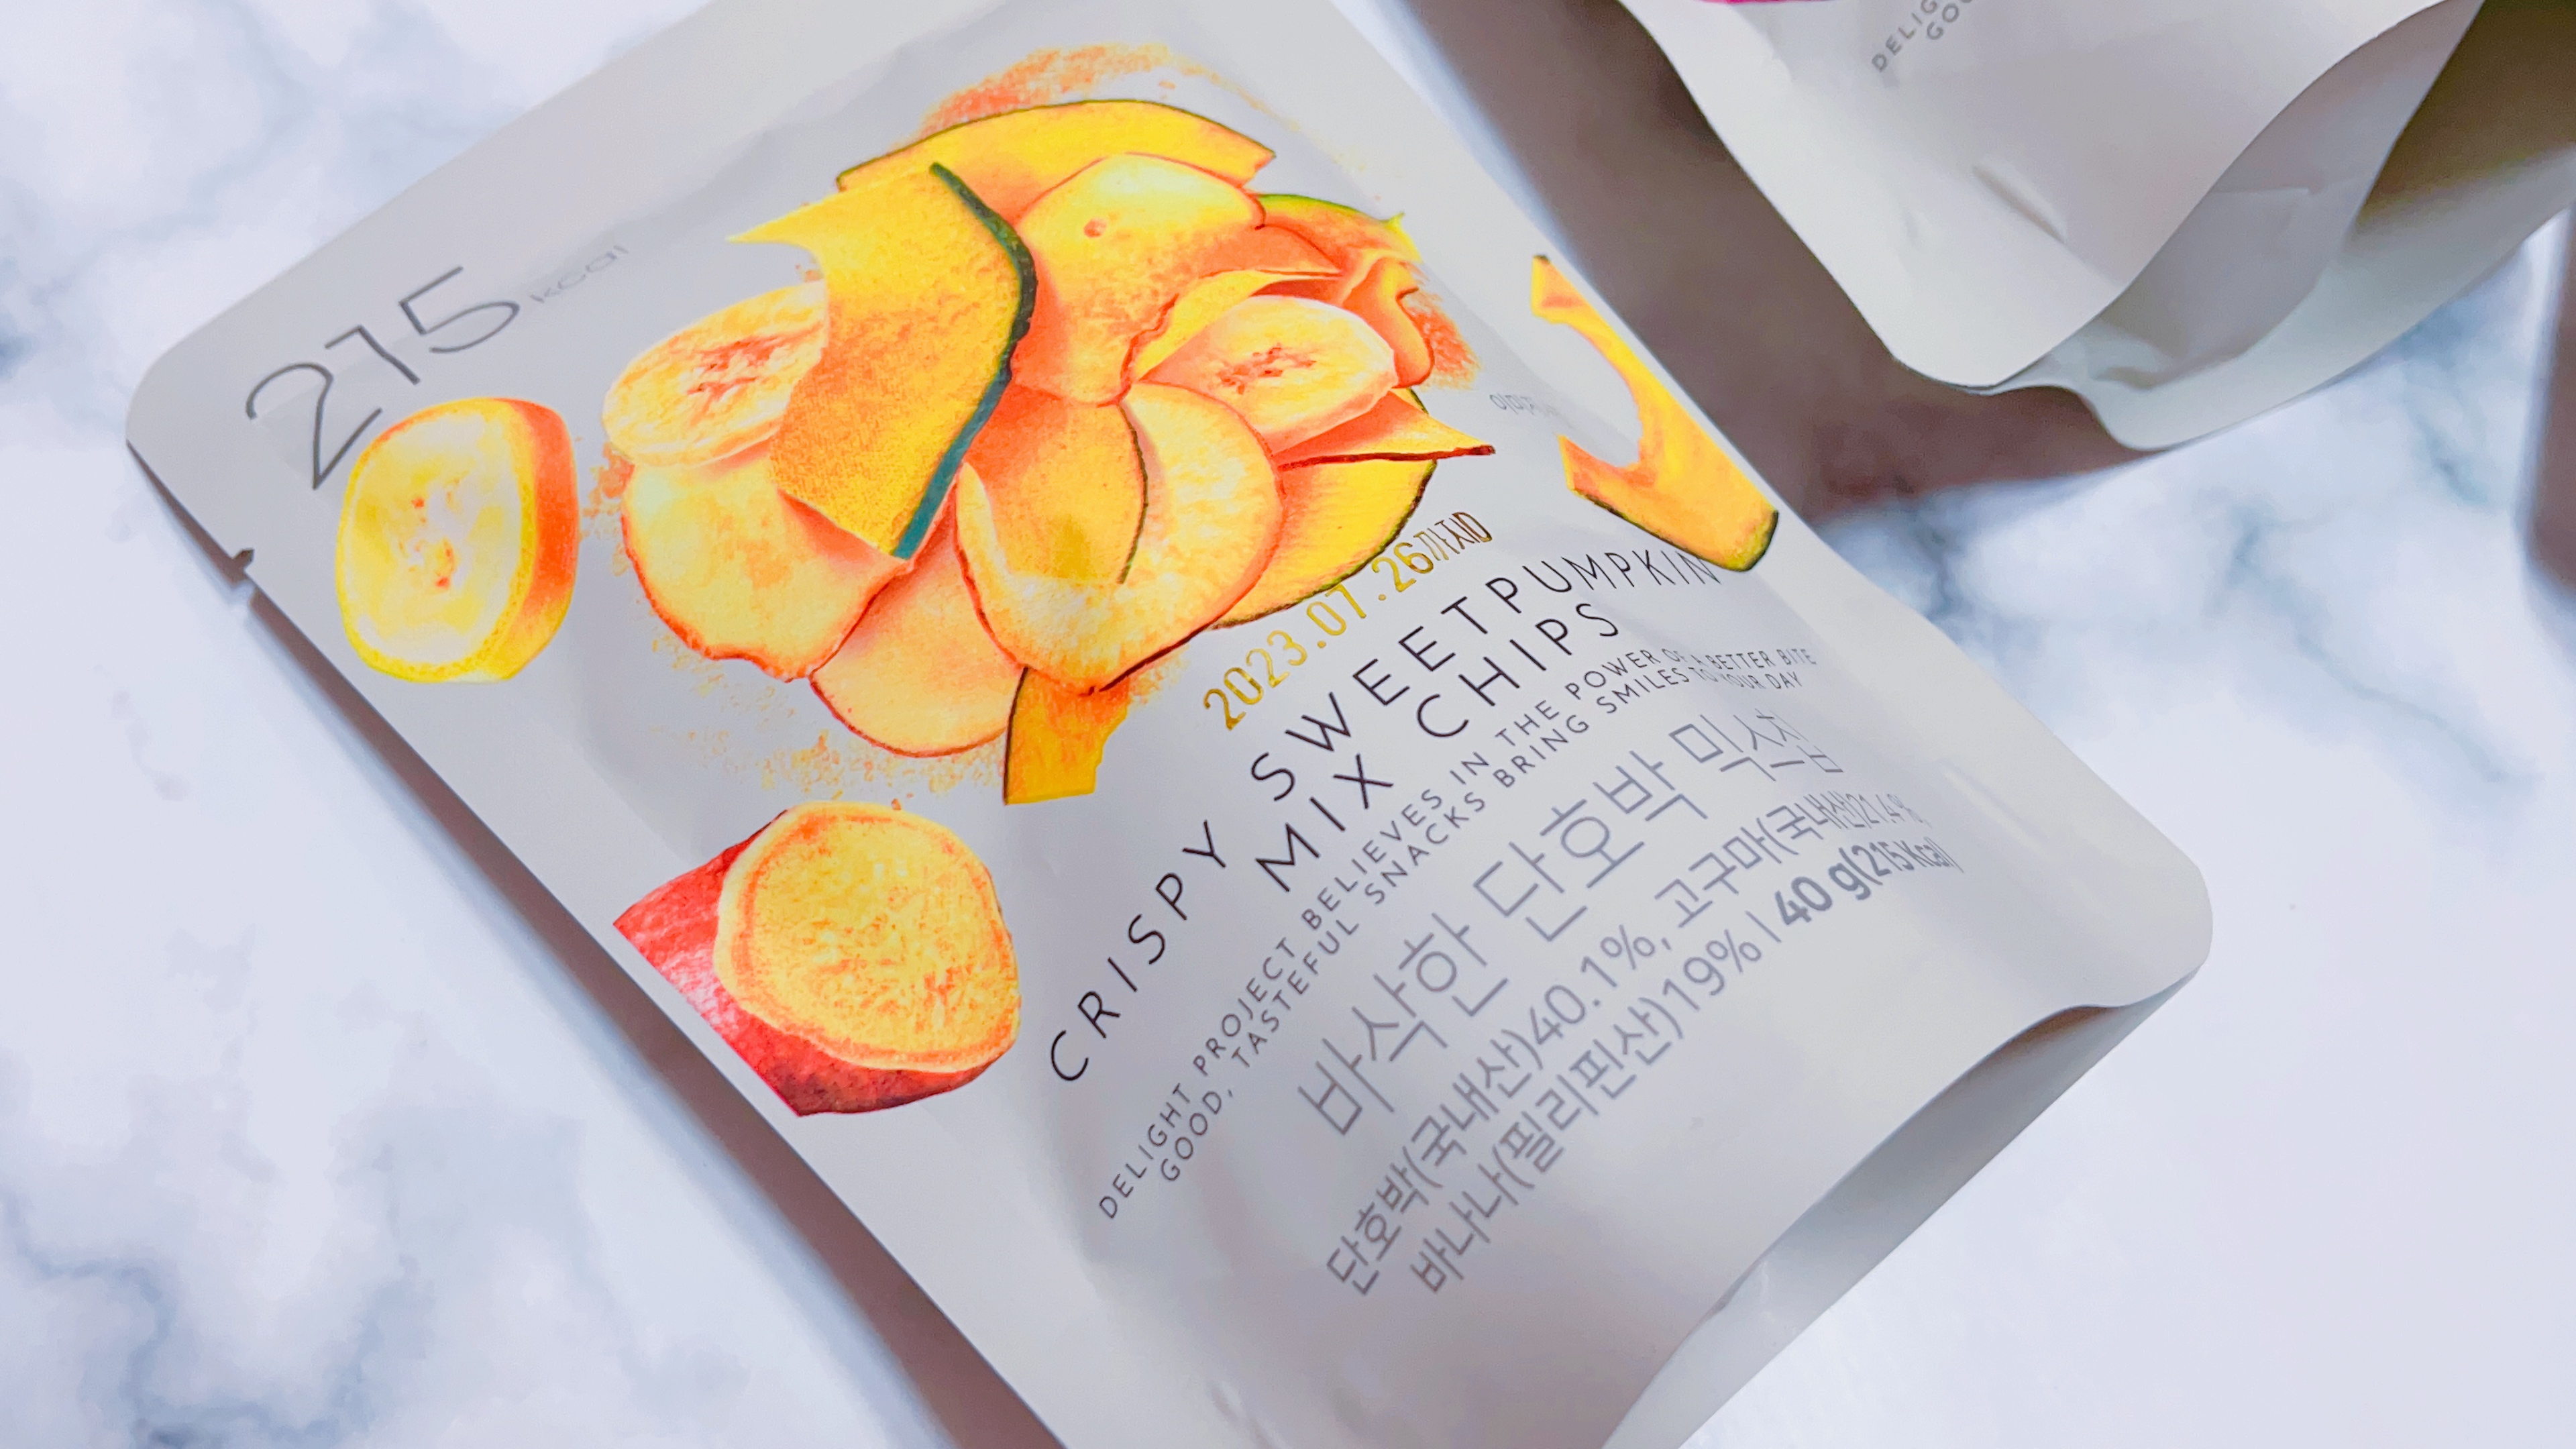 215 kcal
2023.07.26까지ID
CRISPY SWEETPUMPKIN
MIX CHIPS
DELIGHT PROJECT BELIEVES IN THE POWER OF A BETTER BITE
GOOD, TASTEFUL SNACKS BRING SMILES TO YOUR DAY
바삭한 단호박 믹스칩
단호박(국내산)40.1%, 고구마(국내산)21.4%,
바나나(필리핀산)19% | 40 g(215 Kcal)